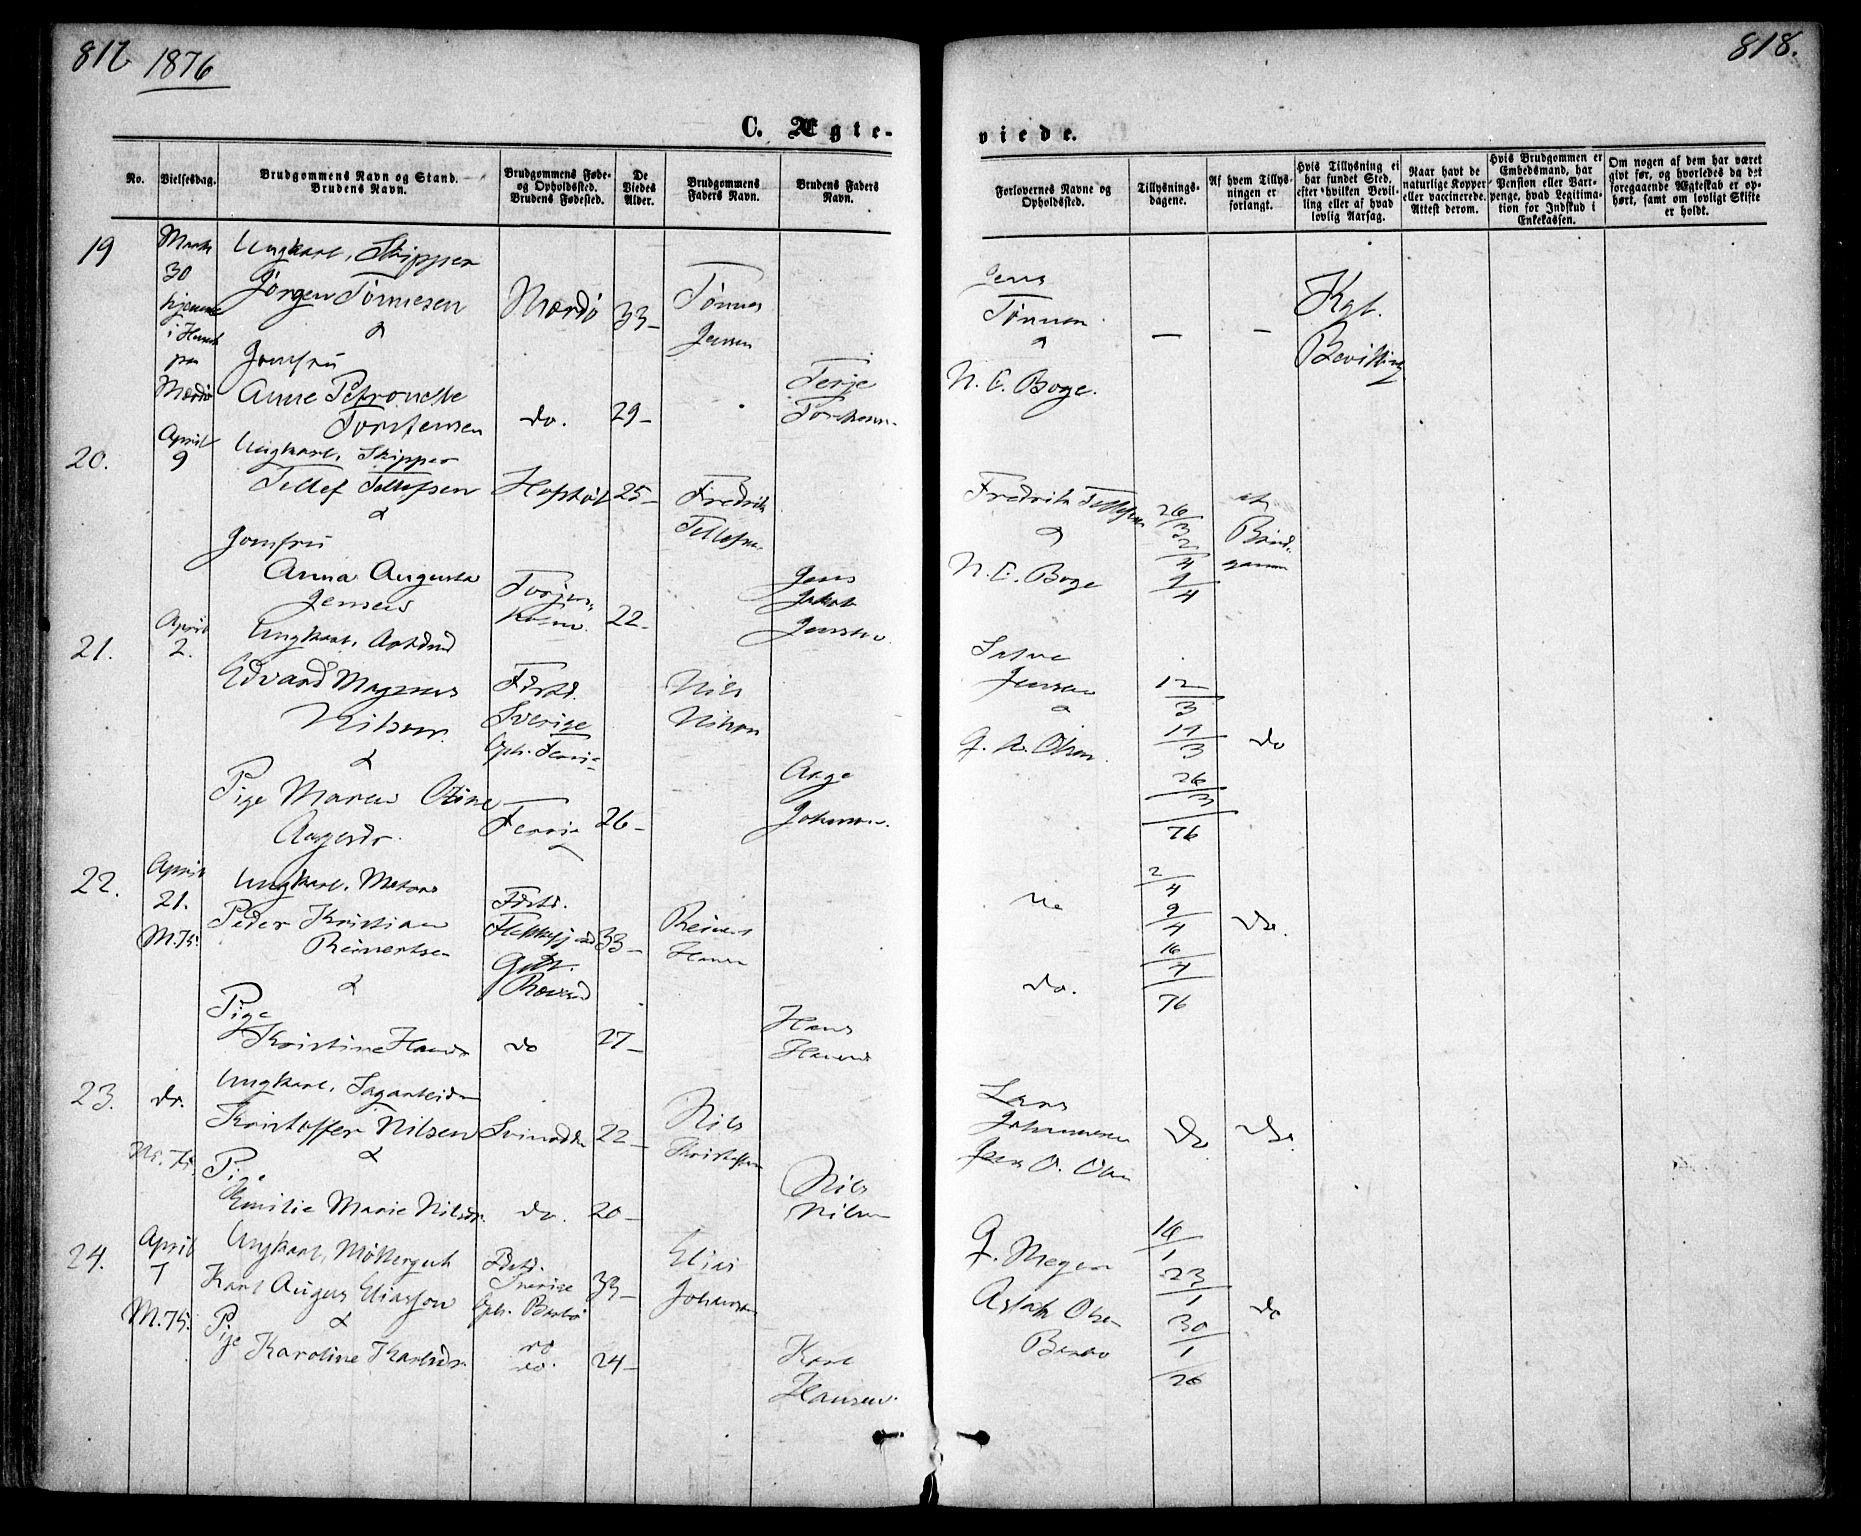 817
1876
818.
C. Ægte-
viede.
No.
Vielsesdag.
Brudgommens Navn og Stand.
Brudens Navn.
Brudgommens Føde-
og Opholdssted.
Brudens Fødested.
De
Viedes
Alder.
Brudgommens
Faders Navn.
Brudens Faders
Navn.
Forlovernes Navne og
Opholdssted.
Tillysnings-
dagene.
Af hvem Tillys-
ningen er
forlangt.
Hvis Tillysning ei
har fundet Sted,
efter hvilken Bevil-
ling eller af hvad
lovlig Aarsag.
Naar havt de
naturlige Kopper
eller vaccinerede.
Attest derom.
Hvis Brudgommen er
Embedsmand, har
Pension eller Vart-
penge, hvad Legitima-
tion for Indskud i
Enkekassen.
Om nogen af dem har været
givt før, og hvorledes da det
foregaaende Ægteskab er op-
hørt, samt om lovligt Skifte
er holdt.
19
Marts
30
hjemme
i Huset
paa
Mærdø
Ungkarl, Skipper
Jørgen Tønnesen
&
Jomfru
Anne Petronelle
Torstensen
Mærdø
do.
33-
29-
Tønnes
Jensen
Terje
Torstensen
Jens
Tønnesen
&
N. C. Boye.
-
-
Kgl.
Bevilling
20.
April
9
Ungkarl, Skipper
Tellef Tellefsen
&
Jomfru
Anna Augusta
Jensen
25-
22-
Fredrik
Tellefsen
Jens
Jakob
Jensen
Fredrik Tellefsen
&
N. C. Boye
26/3
2/4
9/4
Brud-
gommen
21.
April
2.
Ungkarl,
Edvard Magnus
Nilsson
&
Pige Maren Otine
Aagesdr.
Fdstd.
Sverige
26-
Nils
Nilson
Aage
Johnsen.
Jensen
&
G. A. Olsen.
12/3
26/3
76
do
22.
April
21.
M.75.
Ungkarl, Matros
Peder Kristian
Reinertsen
&
Pige
Kristine Hansdr
Fdstd.
do
33-
27-
Reinert
Hansen
Hans
Hansen
do.
2/4
9/4
16/4
76
do.
23.
do.
M. 75.
Ungkarl, Sagarbeider
Kristoffer Nilsen
&
Pige
Emilie Marie Nilsdr.
do.
22-
20-
Nils
Kristoffersen
Nils
Nilsen
Lars
Johannesen
Jens O. Olsen
do.
do.
24.
April
7
M.75.
Ungkarl, Møllergut
Karl August Eliasson
&
Pige Karoline Karlsdr.
Fdstd.
Sverige
Oph. Barbo
do.
33-
24-
Elias
Johansson
Karl
Hansen.
G. Meyer
Aslak Olsen
Barbo
16/1
23/1
30/1
76
do